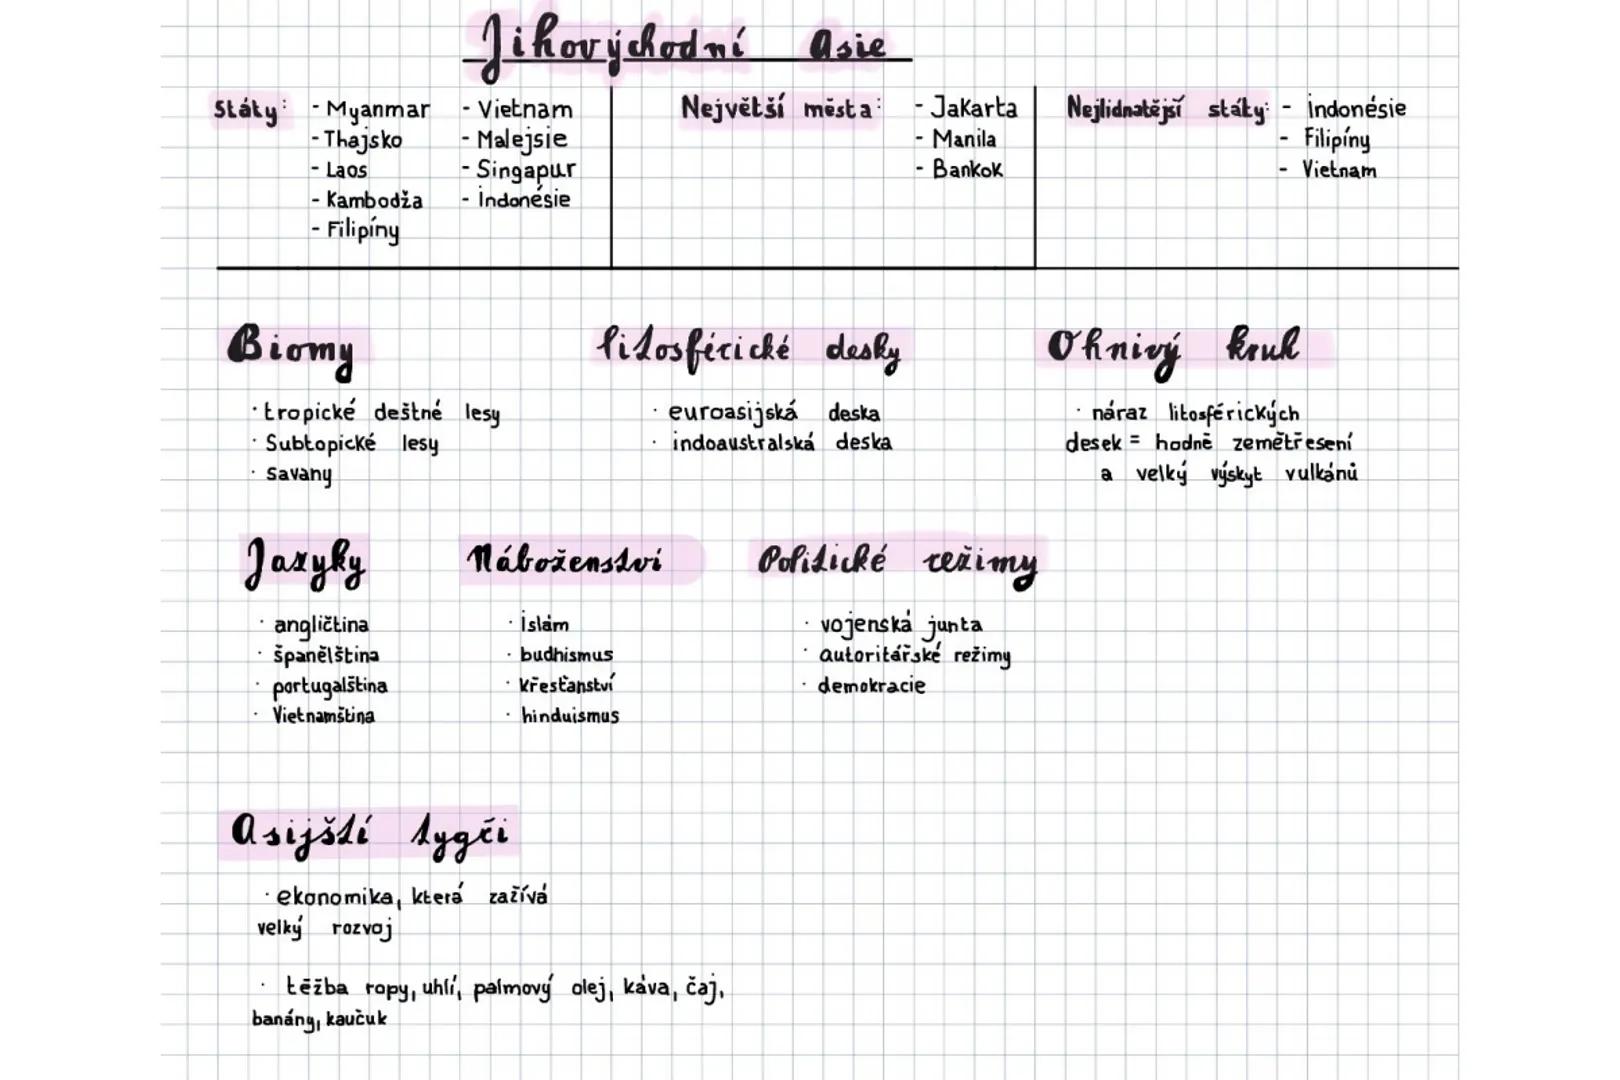 Jihovýchodní Asie
Státy:
- Myanmar
- Thajsko
- Laos
- Kambodža
- Filipíny
- Vietnam
- Malejsie
- Singapur
- Indonésie
Největší města:
- Jakarta
- Manila
- Bankok
Nejlidnatější státy:
- Indonésie
- Filipíny
- Vietnam
Biomy
· tropické deštné lesy
· Subtopické lesy
· savany
litosférické desky
· euroasijská deska
· indoaustralská deska
Ohnivý kruh
· náraz litosférických
desek = hodně zemětřesení
a velký výskyt vulkánů
Jazyky
· angličtina
· španělština
· portugalština
· Vietnamština
Náboženství
· islám
· budhismus
· křesťanství
· hinduismus
Politické režimy
· vojenská junta
· autoritářské režimy
· demokracie
Asijští tygři
· ekonomika, která zažívá
velký rozvoj
· těžba ropy, uhlí, palmový olej, káva, čaj,
banány, kaučuk